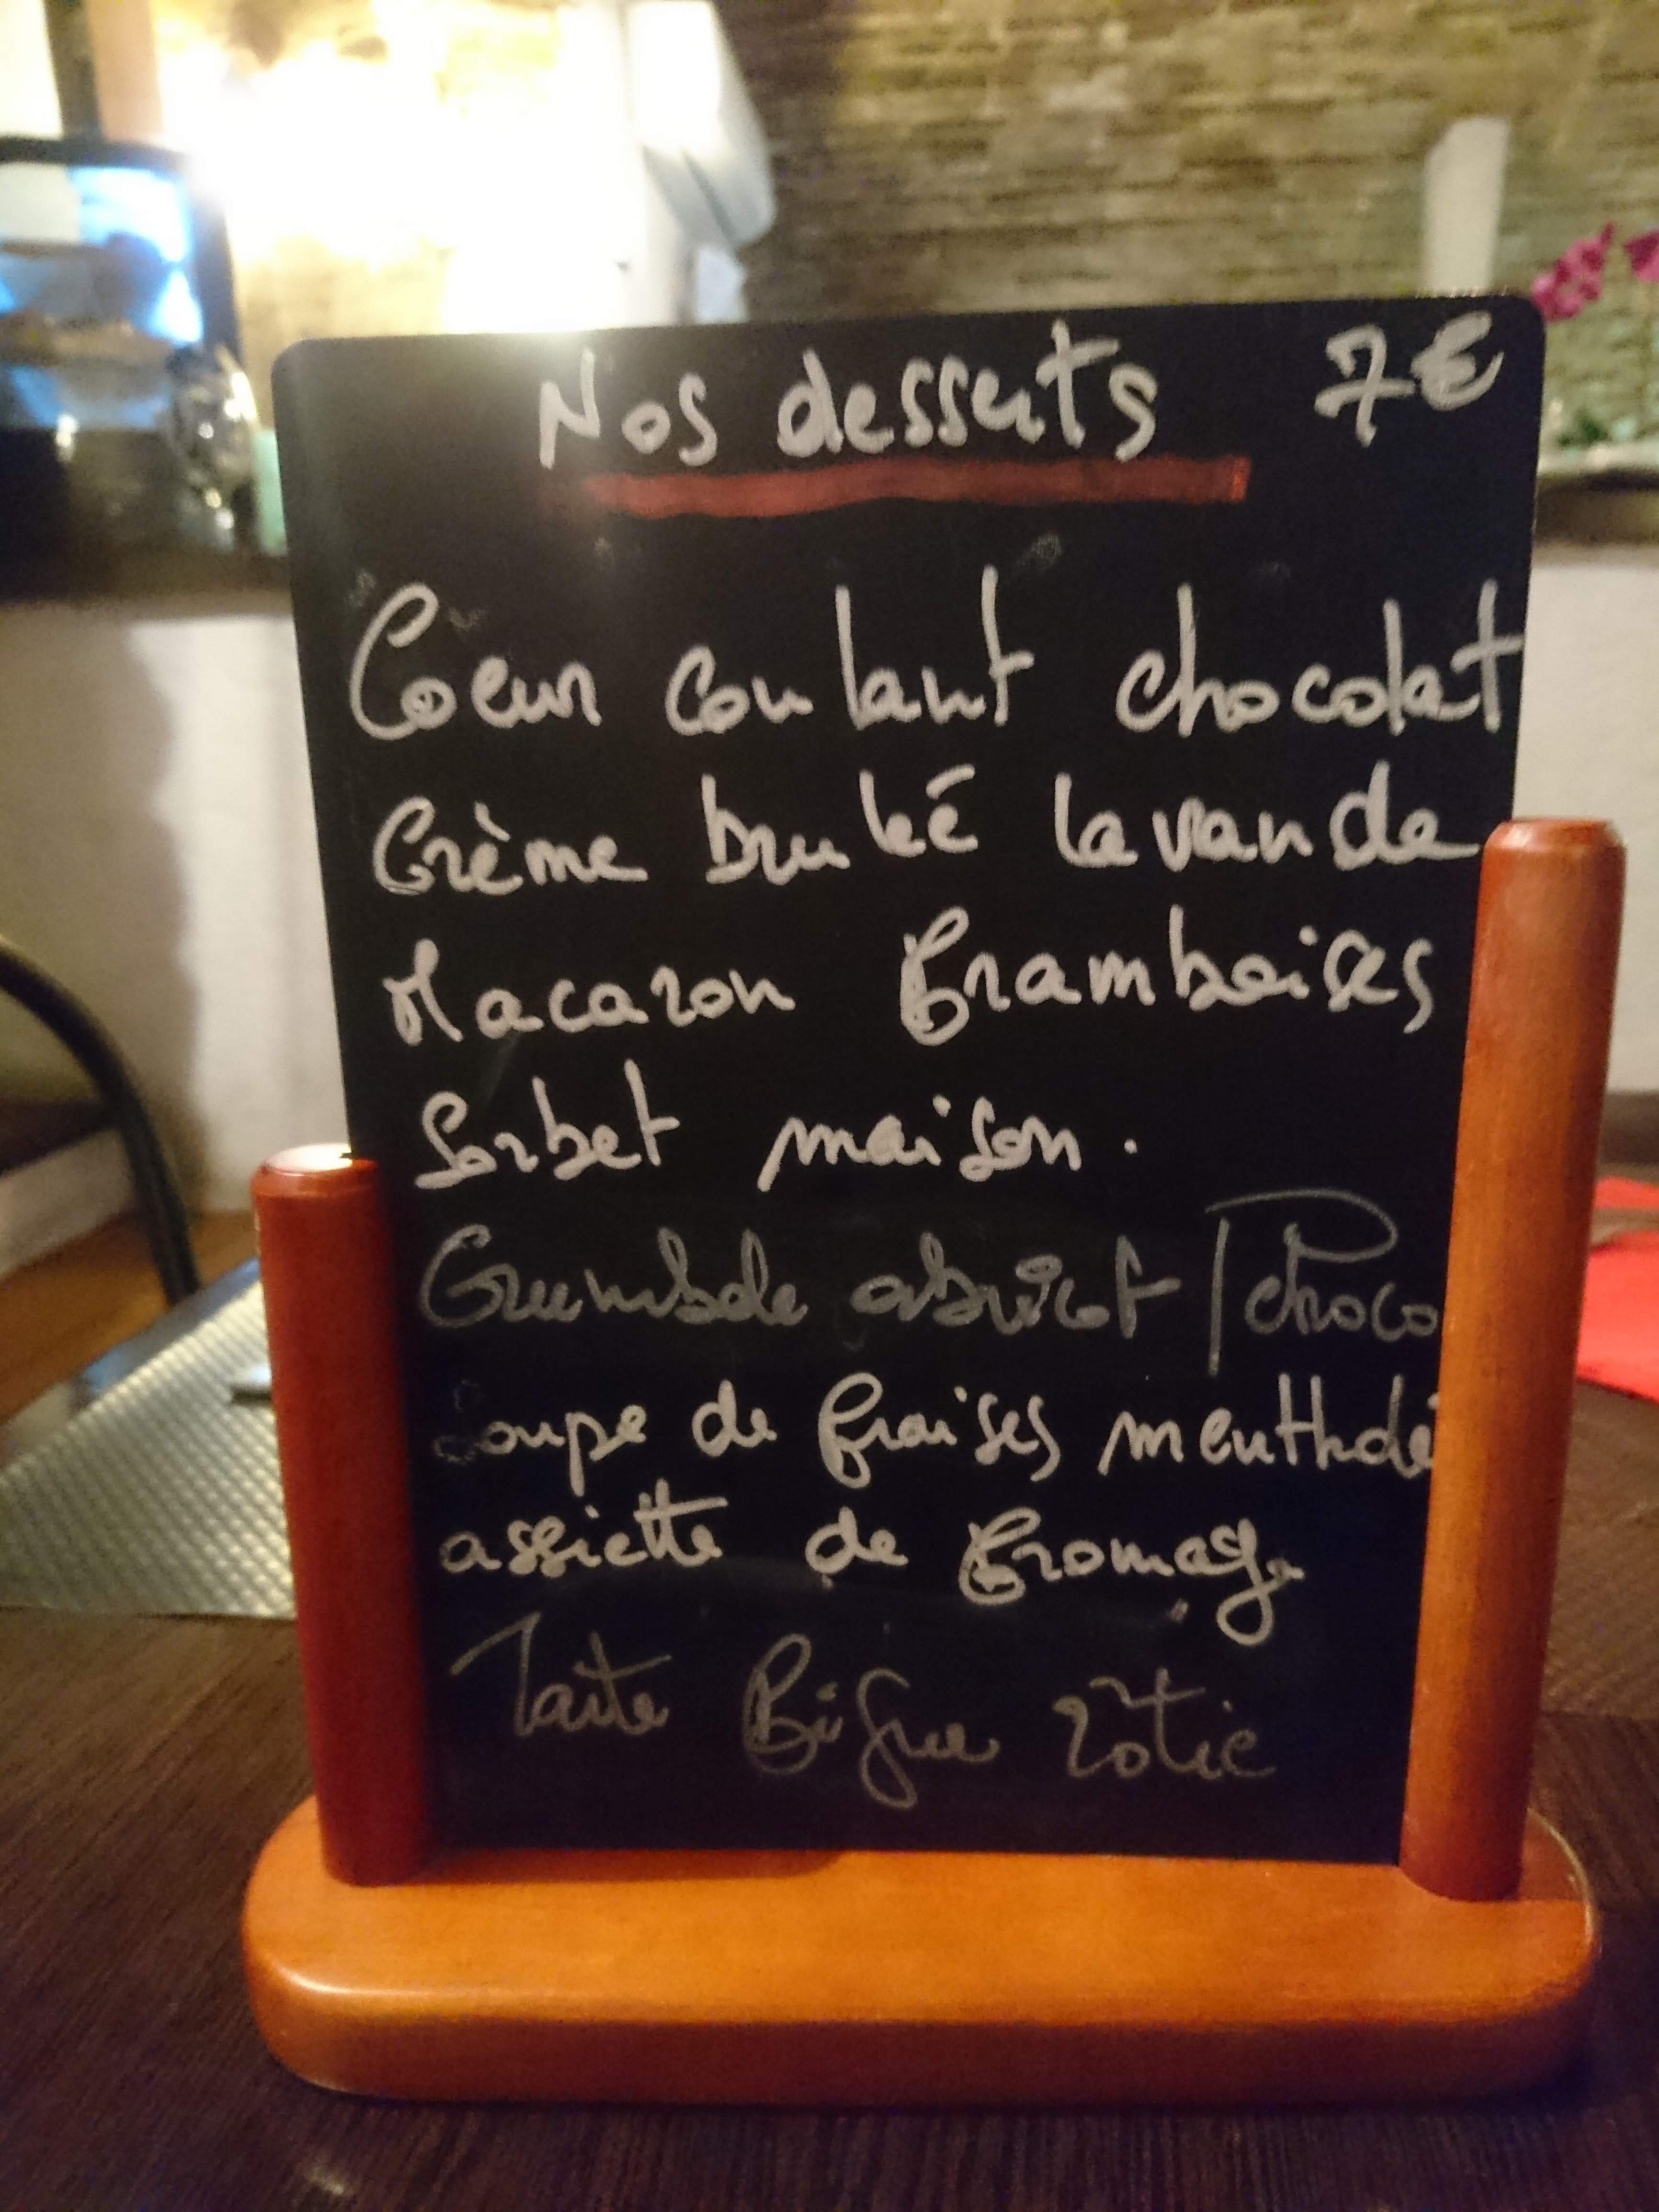 Nos desserts 7€
Coeur coulant chocolat
Crème brulée lavande
Macaron framboises
Sorbet maison.
Crumble abricot / choco
Soupe de fraises menthole
assiette de fromage
Tarte Figue rotie